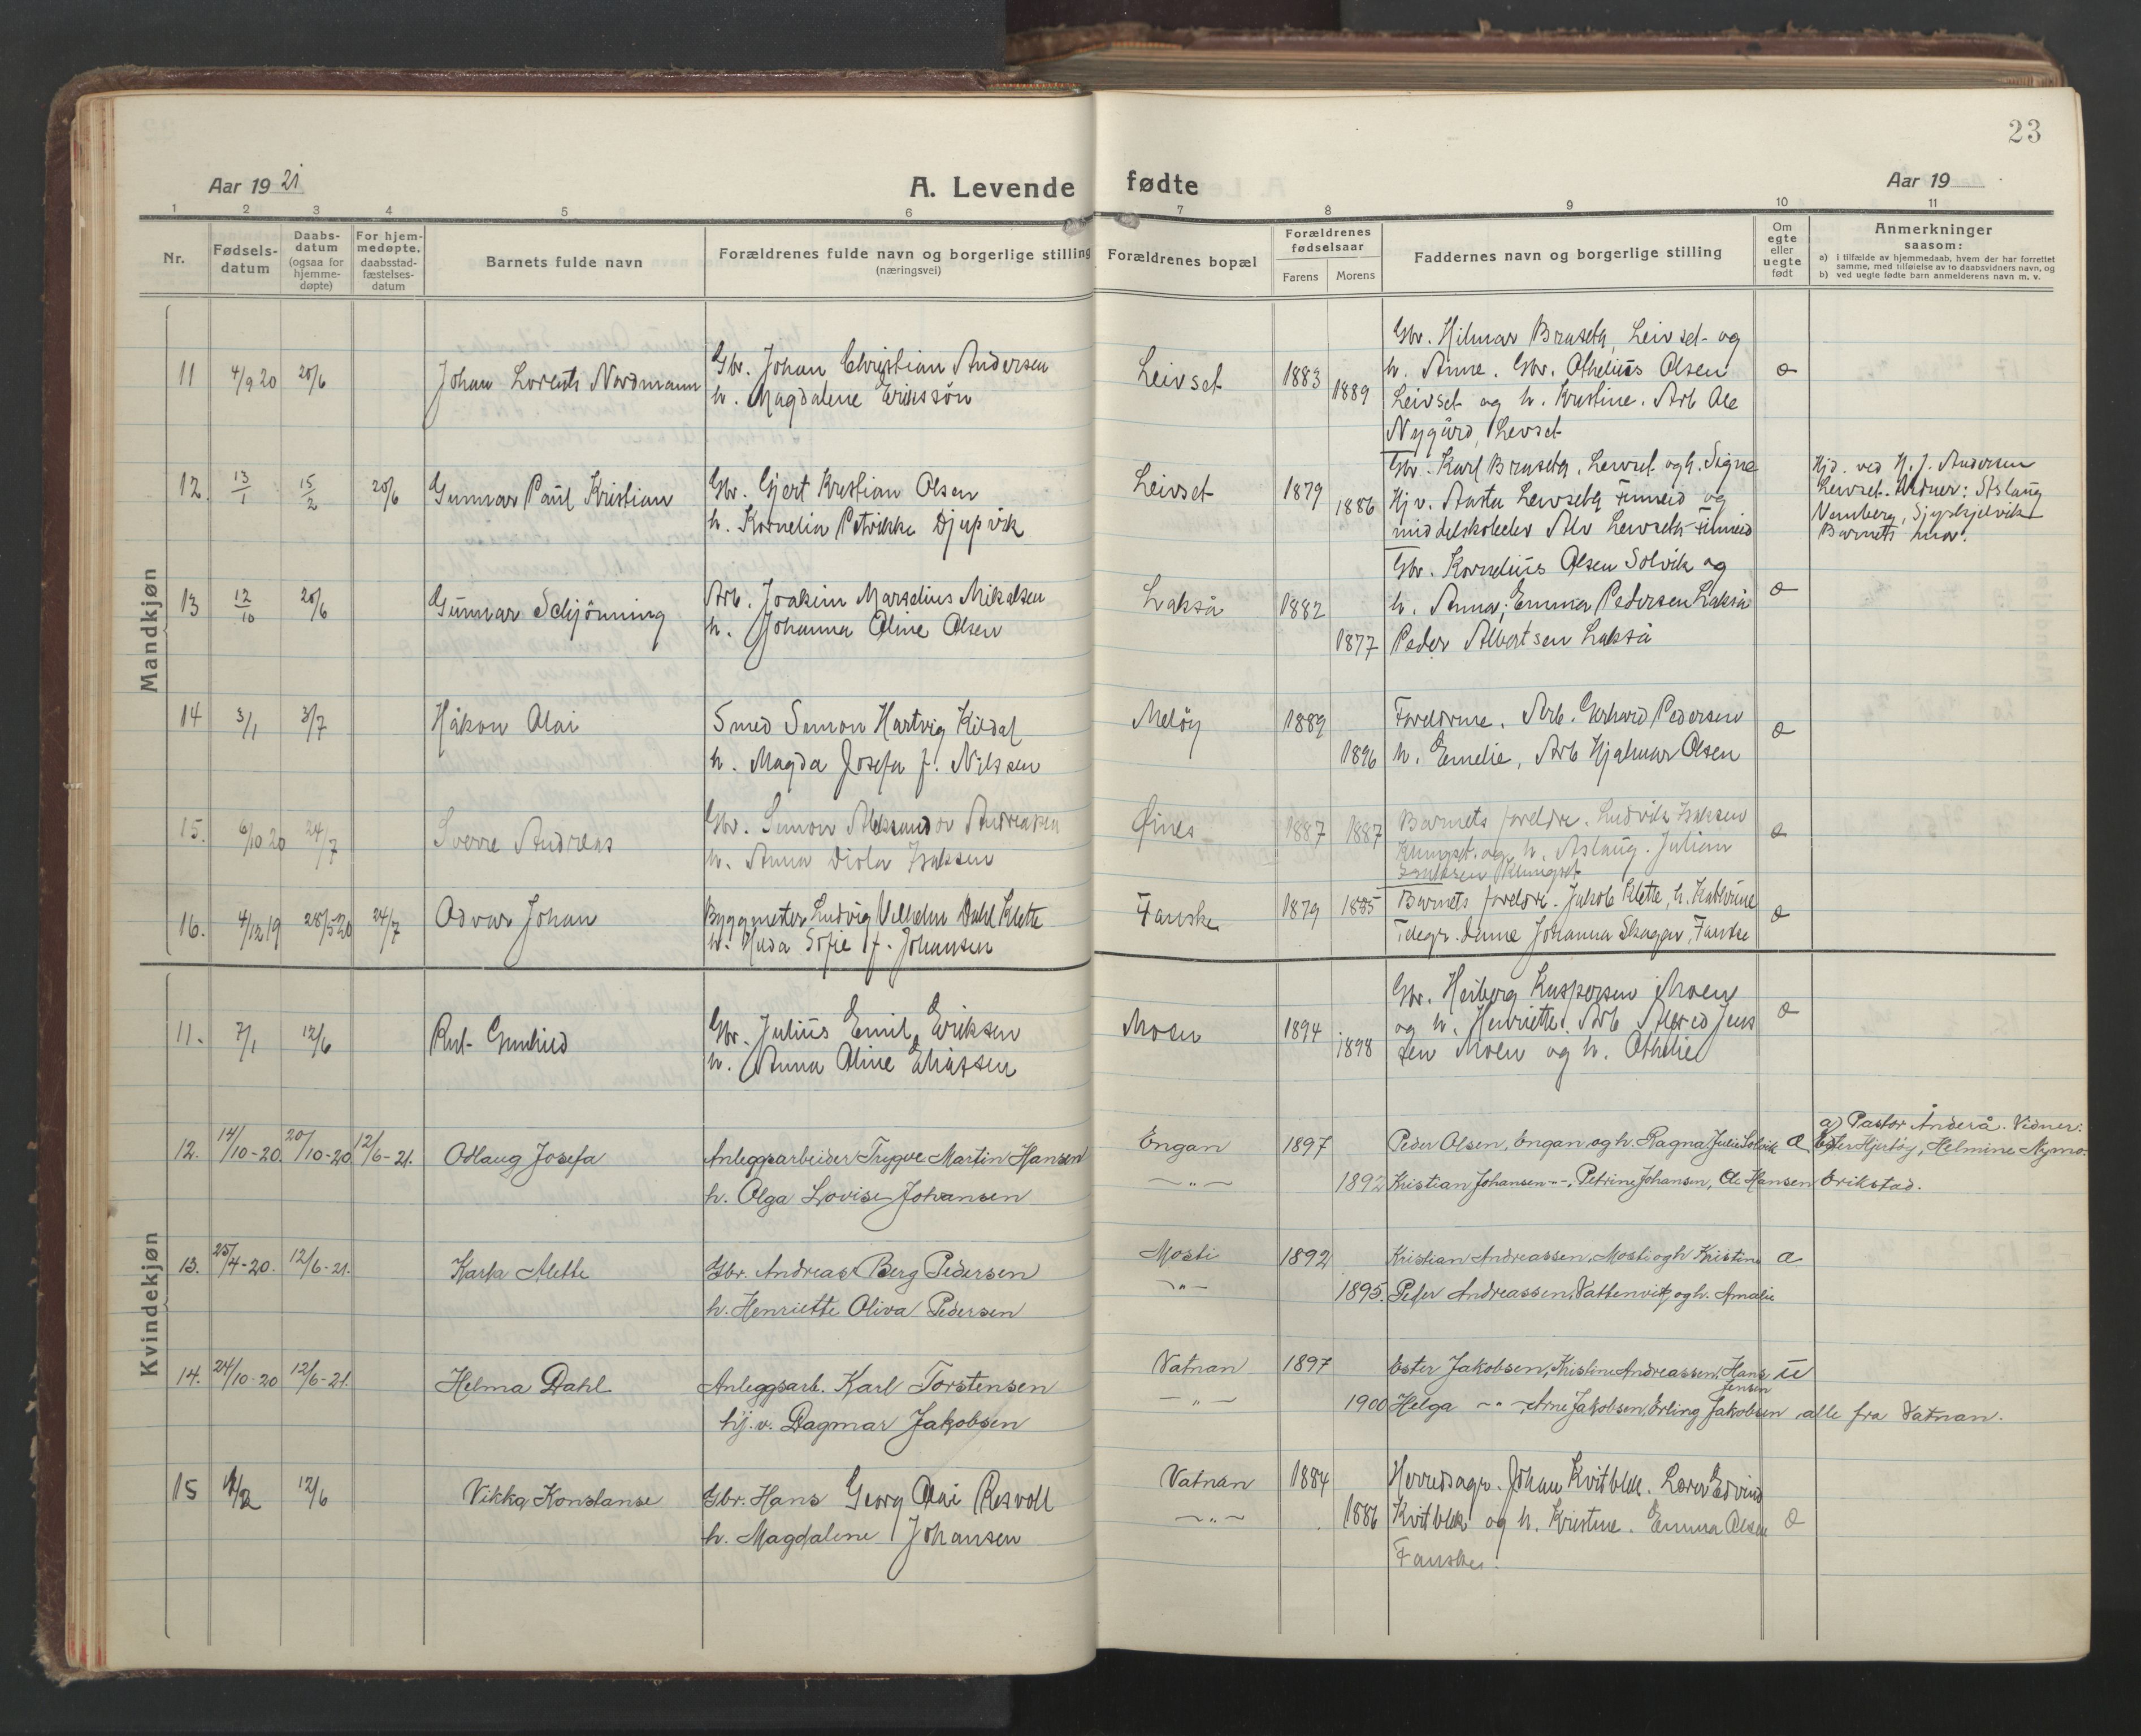 23
Aar 19 21
A. Levende fødte
Aar 19
1 2 3 4 5 6 7 8 9 10 11
Nr.
Fødsels-
datum
Daabs-
datum
(ogsaa for
hjemme-
døpte)
For hjem-
medøpte.
daabsstad-
fæstelses-
datum
Barnets fulde navn
Forældrenes fulde navn og borgerlige stilling
(næringsvei)
Forældrenes bopæl
Forældrenes
fødselsaar
Farens Morens
Faddernes navn og borgerlige stilling
Om
egte
eller
uegte
født
Anmerkninger
saasom:
a) i tilfælde av hjemmedaab, hvem der har forrettet
samme, med tilføielse av to daabsvidners navn, og
b) ved uegte fødte barn anmelderens navn m. v.
Mandkjøn
11 4/9 20 26/6
Johan Lorents Nordmann
Gbr. Johan Christian Andersen
h. Magdalene Erikssøn
Leivset
1883
1889
Gbr. Hilmar Bruseth, Leivset og
h. Anne. Gbr. Othelius Olsen
Leivset og h. Kristine. Arb Ole
Nygård, Levset
e
12. 13/1 15/2 26/6
Gunnar Paul Kristian
Gbr. Gjert Kristian Olsen
h. Kornelia Petrikke Djupvik
Leivset
1879
1886
Gbr. Karl Bruseth, Leivset og h. Signe
Hj v. Aasta Leivseth Finneid og
middelskoleelev Alv Leivseth Finneid
Hjd. ved H. J. Andersen
Leivset. Vidner: Aslaug
Barnets mor.
13 12/10 26/6
Gunnar Schjönning
Arb. Joakim Marselius Mikalsen
h. Johanna Oline Olsen
Lakså
1882
1877
Gbr. Kornelius Olsen Solvik og
h. Anna; Emma Pedersen Lakså
Peder Albertsen Lakså
e
14 3/1 3/7
Håkon Olai
Smed Simon Hartvig Kildal
h. Magda Josefa f. Nilssen
Meløy
1889
1896
Foreldrene. Arb. Gerhard Pedersen
h. Emelie, Arb Hjalmar Olsen
e
15. 6/10 20 24/7
Sverre Andreas
Gbr. Simon Aleksander Andreasen
h. Anna Viola Isaksen
Øines
1887 1887
Barnets foreldre. Ludvik Isaksen
Klungset og h. Aslaug. Julian
Isaksen Klungset
e
16. 4/12 19 28/5 20 24/7
Odvar Johan
Byggmester Ludvig Vilhelm Dahl Klette
h. Hilda Sofie f. Johansen
Fauske
1879 1885
Barnets foreldre. Jakob Klette, h. Kathrine
Telegr. dame Johanna Skagen, Fauske
e
Kvindekjøn
11. 7/1 12/6
Rut Gunhild
Gbr. Julius Emil Eriksen
h. Anna Oline Eliassen
Moen
1894
1898
Gbr. Heiberg Kaspersen Moen
og h. Henriette. Arb Alfred Jens
sen Moen og h. Othelie
e
12. 14/10-20. 20/10-20 12/6-21.
Odlaug Josefa
Anleggsarbeider Trygve Martin Hansen
h. Olga Lovise Johansen
Engan
—„—
1897
1892
Peder Olsen, Engan, og h. Ragna, Julie Solvik
Kristian Johansen -"-, Petrine Johansen, Ole Hansen
e
a) Pastor Anderå. Vidner:
Ester Hjertøy, Helmine Nymo
Erikstad.
13. 25/4-20. 12/6-21.
Karla Alette
Gbr. Andreas Berg Pedersen
h. Henriette Oliva Pedersen
Mosti
—„—
1892
1895.
Kristian Andreassen, Mosti og h Kristine
Peder Andreassen, Vattenvik, og h. Amalie
e
14. 24/10-20 12/6-21.
Helma Dahl
Anleggsarb. Karl Torstensen
hj. v. Dagmar Jakobsen
Vatnan
—„—
1897
1900
Ester Jakobsen, Kristine Andreassen, Hans
Jensen
Helga —"—, Arne Jakobsen, Erling Jakobsen, alle fra Vatnan.
u
15 12/6
Vikka Konstanse
Gbr. Hans Georg Olai Resvoll
h. Magdalene Johansen
Vatnan
—„—
1884
1886
Herredsagr. Johan Kvitblik. Lærer Edvind
Kvitblik og h. Kristine. Emma Olsen
Fauske.
e